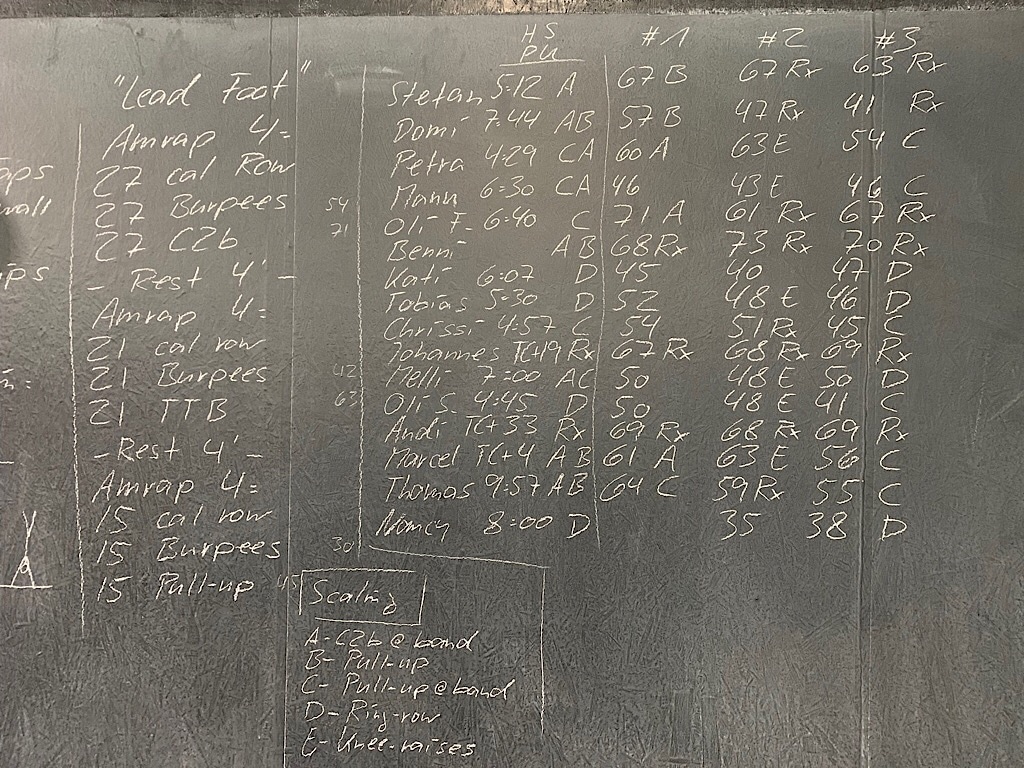 "Lead Foot"
Amrap 4=
27 cal Row
27 Burpees 54
27 C2b 71
- Rest 4' -
Amrap 4=
21 cal row
21 Burpees 42
21 TTB 63
- Rest 4' -
Amrap 4=
15 cal row
15 Burpees 30
15 Pull-up 45
HS PU #1 #2 #3
Stefan 5:12 A 67 B 67 Rx 63 Rx
Domi 7:44 AB 57 B 47 Rx 41 Rx
Petra 4:29 CA 60 A 63 E 54 C
Manu 6:30 CA 46 43 E 46 C
Oli F. 6:40 C 71 A 61 Rx 67 Rx
Benni AB 68 Rx 73 Rx 70 Rx
Kati 6:07 D 45 40 47 D
Tobias 5:30 D 52 48 E 46 D
Chrissi 4:57 C 54 51 Rx 45 C
Johannes TC+19 Rx 67 Rx 68 Rx 69 Rx
Melli 7:00 AC 50 48 E 50 D
Oli S. 4:45 D 50 48 E 41 C
Andi TC+33 Rx 69 Rx 68 Rx 69 Rx
Marcel TC+4 AB 61 A 63 E 56 C
Thomas 9:57 AB 64 C 59 Rx 55 C
Nancy 8:00 D 35 38 D
Scaling
A - C2b @ band
B - Pull-up
C - Pull-up @ band
D - Ring-row
E - Knee-raises